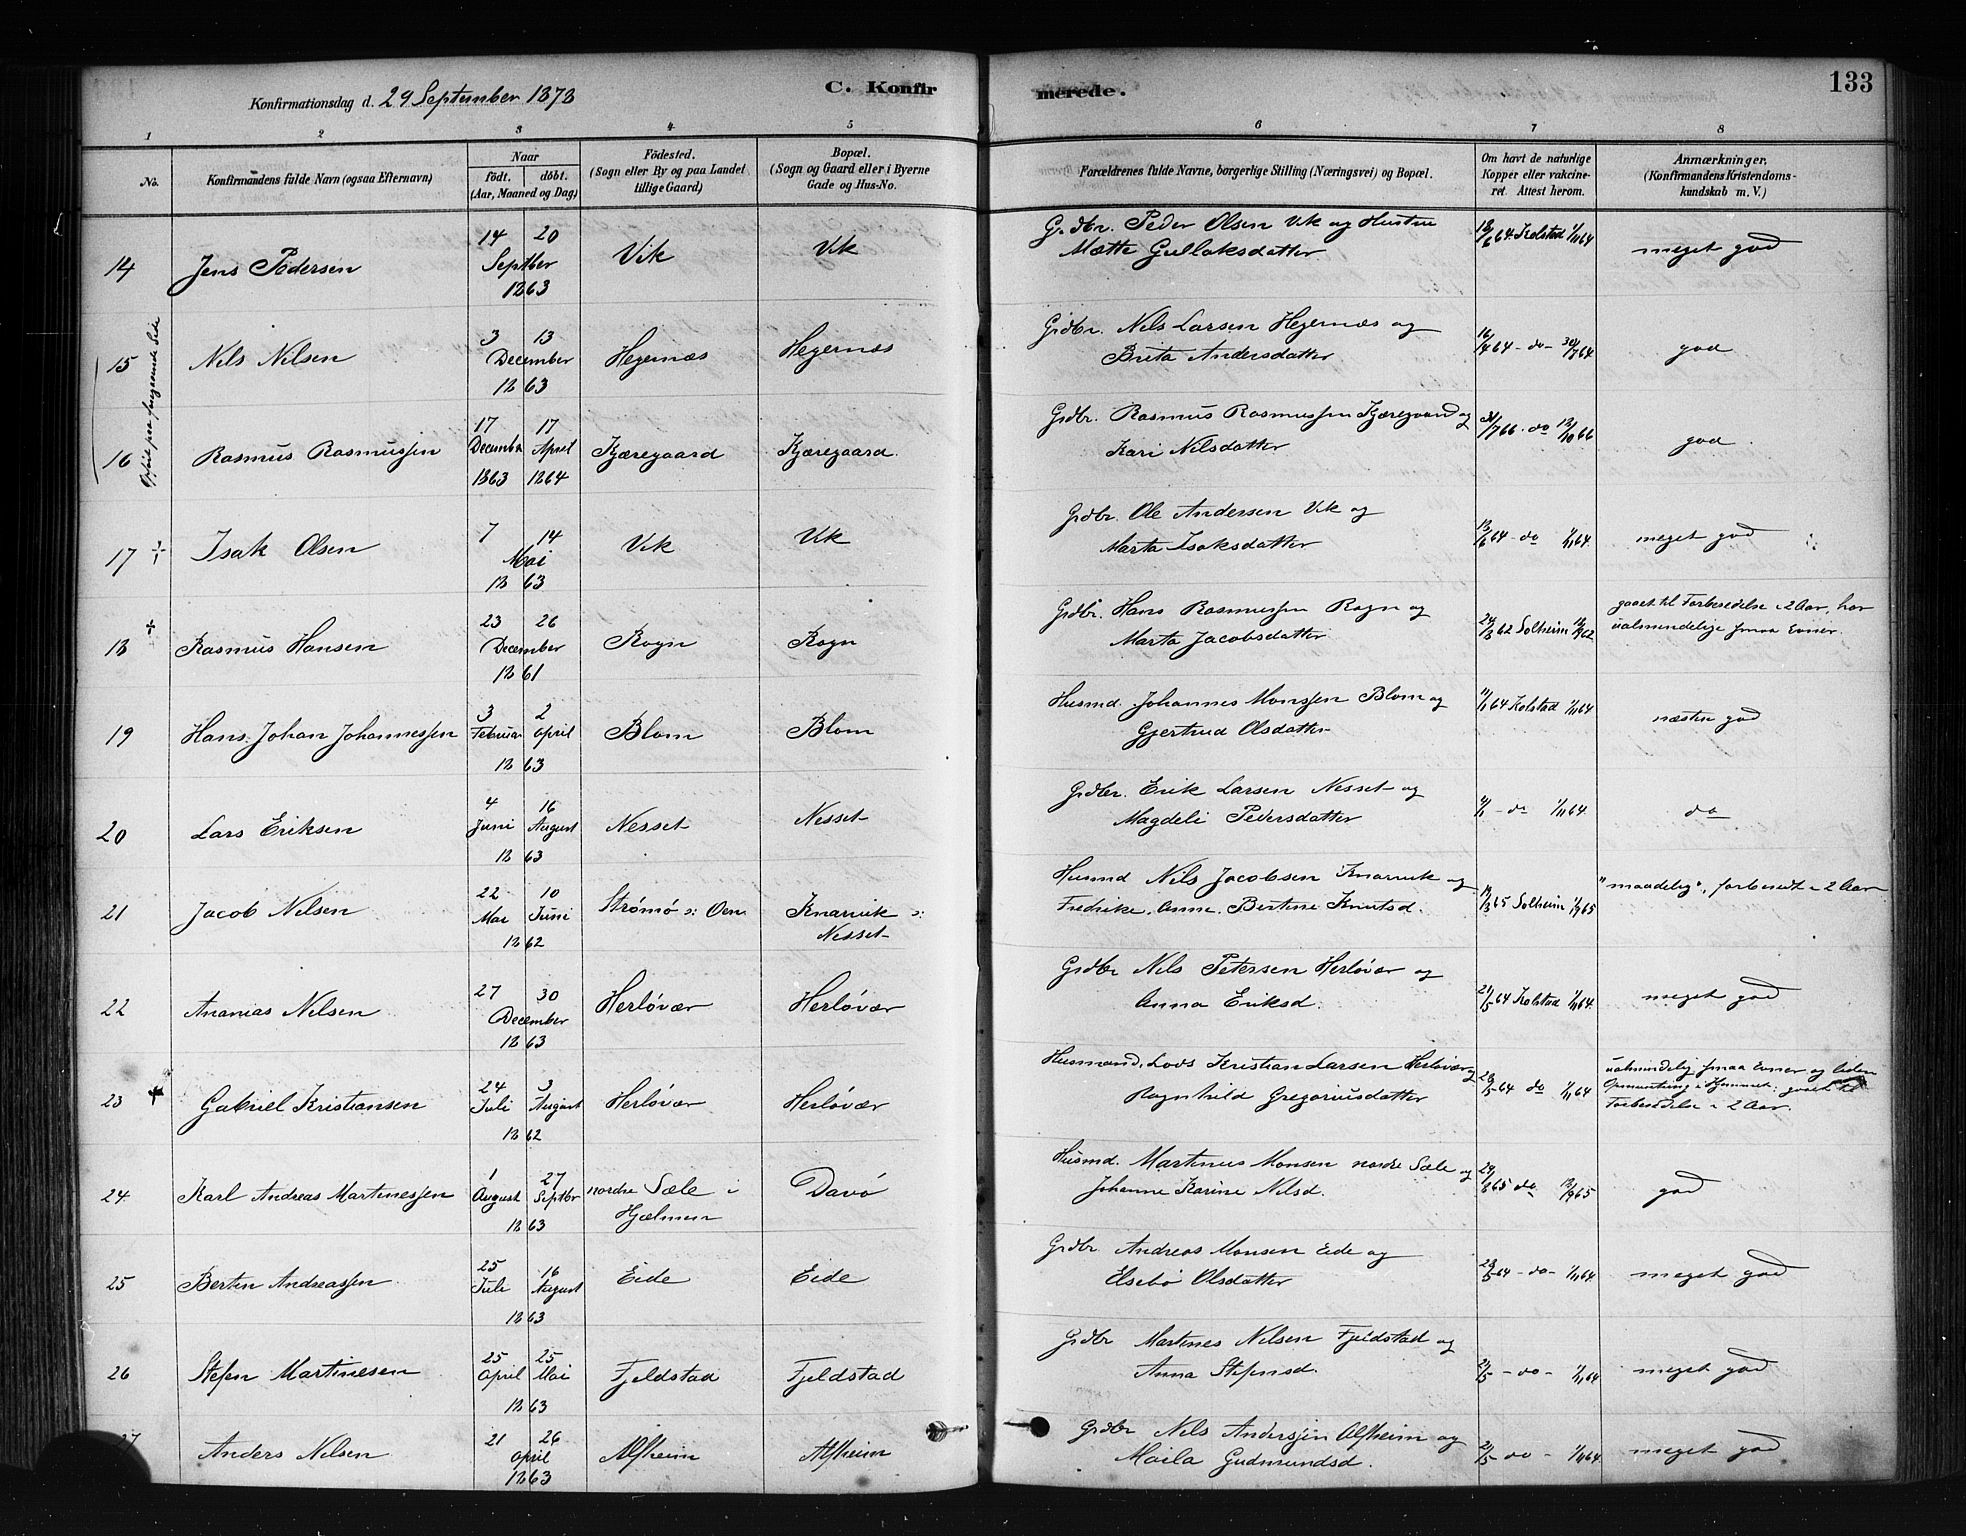 Konfirmationsdag d. 29 September 1878
C. Konfirmerede.
133
1 2 3 4 5 6 7 8
No.
Konfirmandens fulde Navn (ogsaa Efternavn)
Naar
födt. döbt.
(Aar, Maaned og Dag)
Födested.
(Sogn eller By og paa Landet
tillige Gaard)
Bopæl.
(Sogn og Gaard eller i Byerne
Gade og Hus-No.
Forældrenes fulde Navne, borgerlige Stilling (Næringsvei) og Bopæl.
Om havt de naturlige
Kopper eller vakcine-
ret. Attest herom.
Anmærkninger.
(Konfirmandens Kristendoms-
kundskab m. V.)
14 Jens Pedersen 14 20 Septber 1863 Vik Vik
G.dbr. Peder Olsen Vik og Hustru
Mætte Gullaksdatter
18/6 64 Kolstad 1/11 64 meget god
Opført paa foregaaende Side
15 Nils Nilsen 3 13 December 1863 Hegernæs Hegernæs
Grdbr. Nils Larsen Hegernæs og
Brita Andersdatter
16/4 64 - do - 30/7 64 god
16 Rasmus Rasmussen 17 December 1863 17 April 1864 Kjæregaard Kjæregaard.
Grdbr. Rasmus Rasmussen Kjæregaard og
Kari Nilsdatter
/7 66 - do 12/10 66 god
17 Isak Olsen 7 14 Mai 1863 Vik Vik
Grdbr. Ole Andersen Vik og
Marta Isaksdatter
13/6 64 - do 1/11 64. meget god
18 Rasmus Hansen 23 26 December 1861 Rogn Rogn
Grdbr. Hans Rasmussen Rogn og
Marta Jacobsdatter
/8 62 Solheim /9 62 gaaet til Forberedelse i 2 Aar, har
ualmindelige smaa Evner.
19 Hans Johan Johannessen 3 Februar 2 April 1863 Blom Blom
Husmd. Johannes Monssen Blom og
Gjertrud Olsdatter
64 Kolstad 1/11 64 næsten god
20 Lars Eriksen 4 Juni 16 August 1863 Nesset Nesset
Grdbr. Erik Larsen Nesset og
Magdeli Pedersdatter
- do 1/11 64. do
21 Jacob Nilsen 22 Mai 10 Juni 1862 Strømø s: Oen Knarvik s:
Nesset
Husmd Nils Jacobsen Knarvik og
Fredrike Anne Bertine Knutsd.
14/3 65 Solheim 1/9 65 "maadelig", forberedt i 2 Aar
22 Ananias Nilsen 27 30 December 1863 Herløvær Herløvær
Grdbr Nils Petersen Herløvær og
Anna Eriksd.
21/5 64 Kolstad 1/11 64. meget god
23 Gabriel Kristiansen 24 Juli 3 August 1862 Herløvær Herløvær
Husmand, Lods Kristian Larsen Herløvær og
Ragnhild Gregoriusdatter
28/5 64 do 1/11 64 ualmindelig smaa Evner og liden
Opmuntring i Hjemmet: gaaet til
Forberedelse i 2 Aar.
24 Karl Andreas Martinessen 1 August 27 Septbr 1863 nordre Sæle i
Hjelmen Davø
Husmd. Martinus Monsen nordre Sæle og
Johanne Karine Nilsd.
29/8 65 do 12/9 65 god
25 Bertin Andreassen 25 Juli 16 August 1863 Eide Eide
Grdbr Andreas Monsen Eide og
Elsebø Olsdatter
28/5 64 - do - 1/11 64 meget god
26 Stefen Martinesen 25 April 25 Mai 1863 Fjeldstad Fjeldstad
Grdbr Martines Nilsen Fjeldstad og
Anna Stefensd.
21/5 - do - 1/11 64 meget god
27 Anders Nilsen 21 26 April 1863 Alfheim Alfheim
Grdbr Nils Andersen Alfheim og
Maila Gudmundsd.
21/5 - do - 1/11 64. meget god